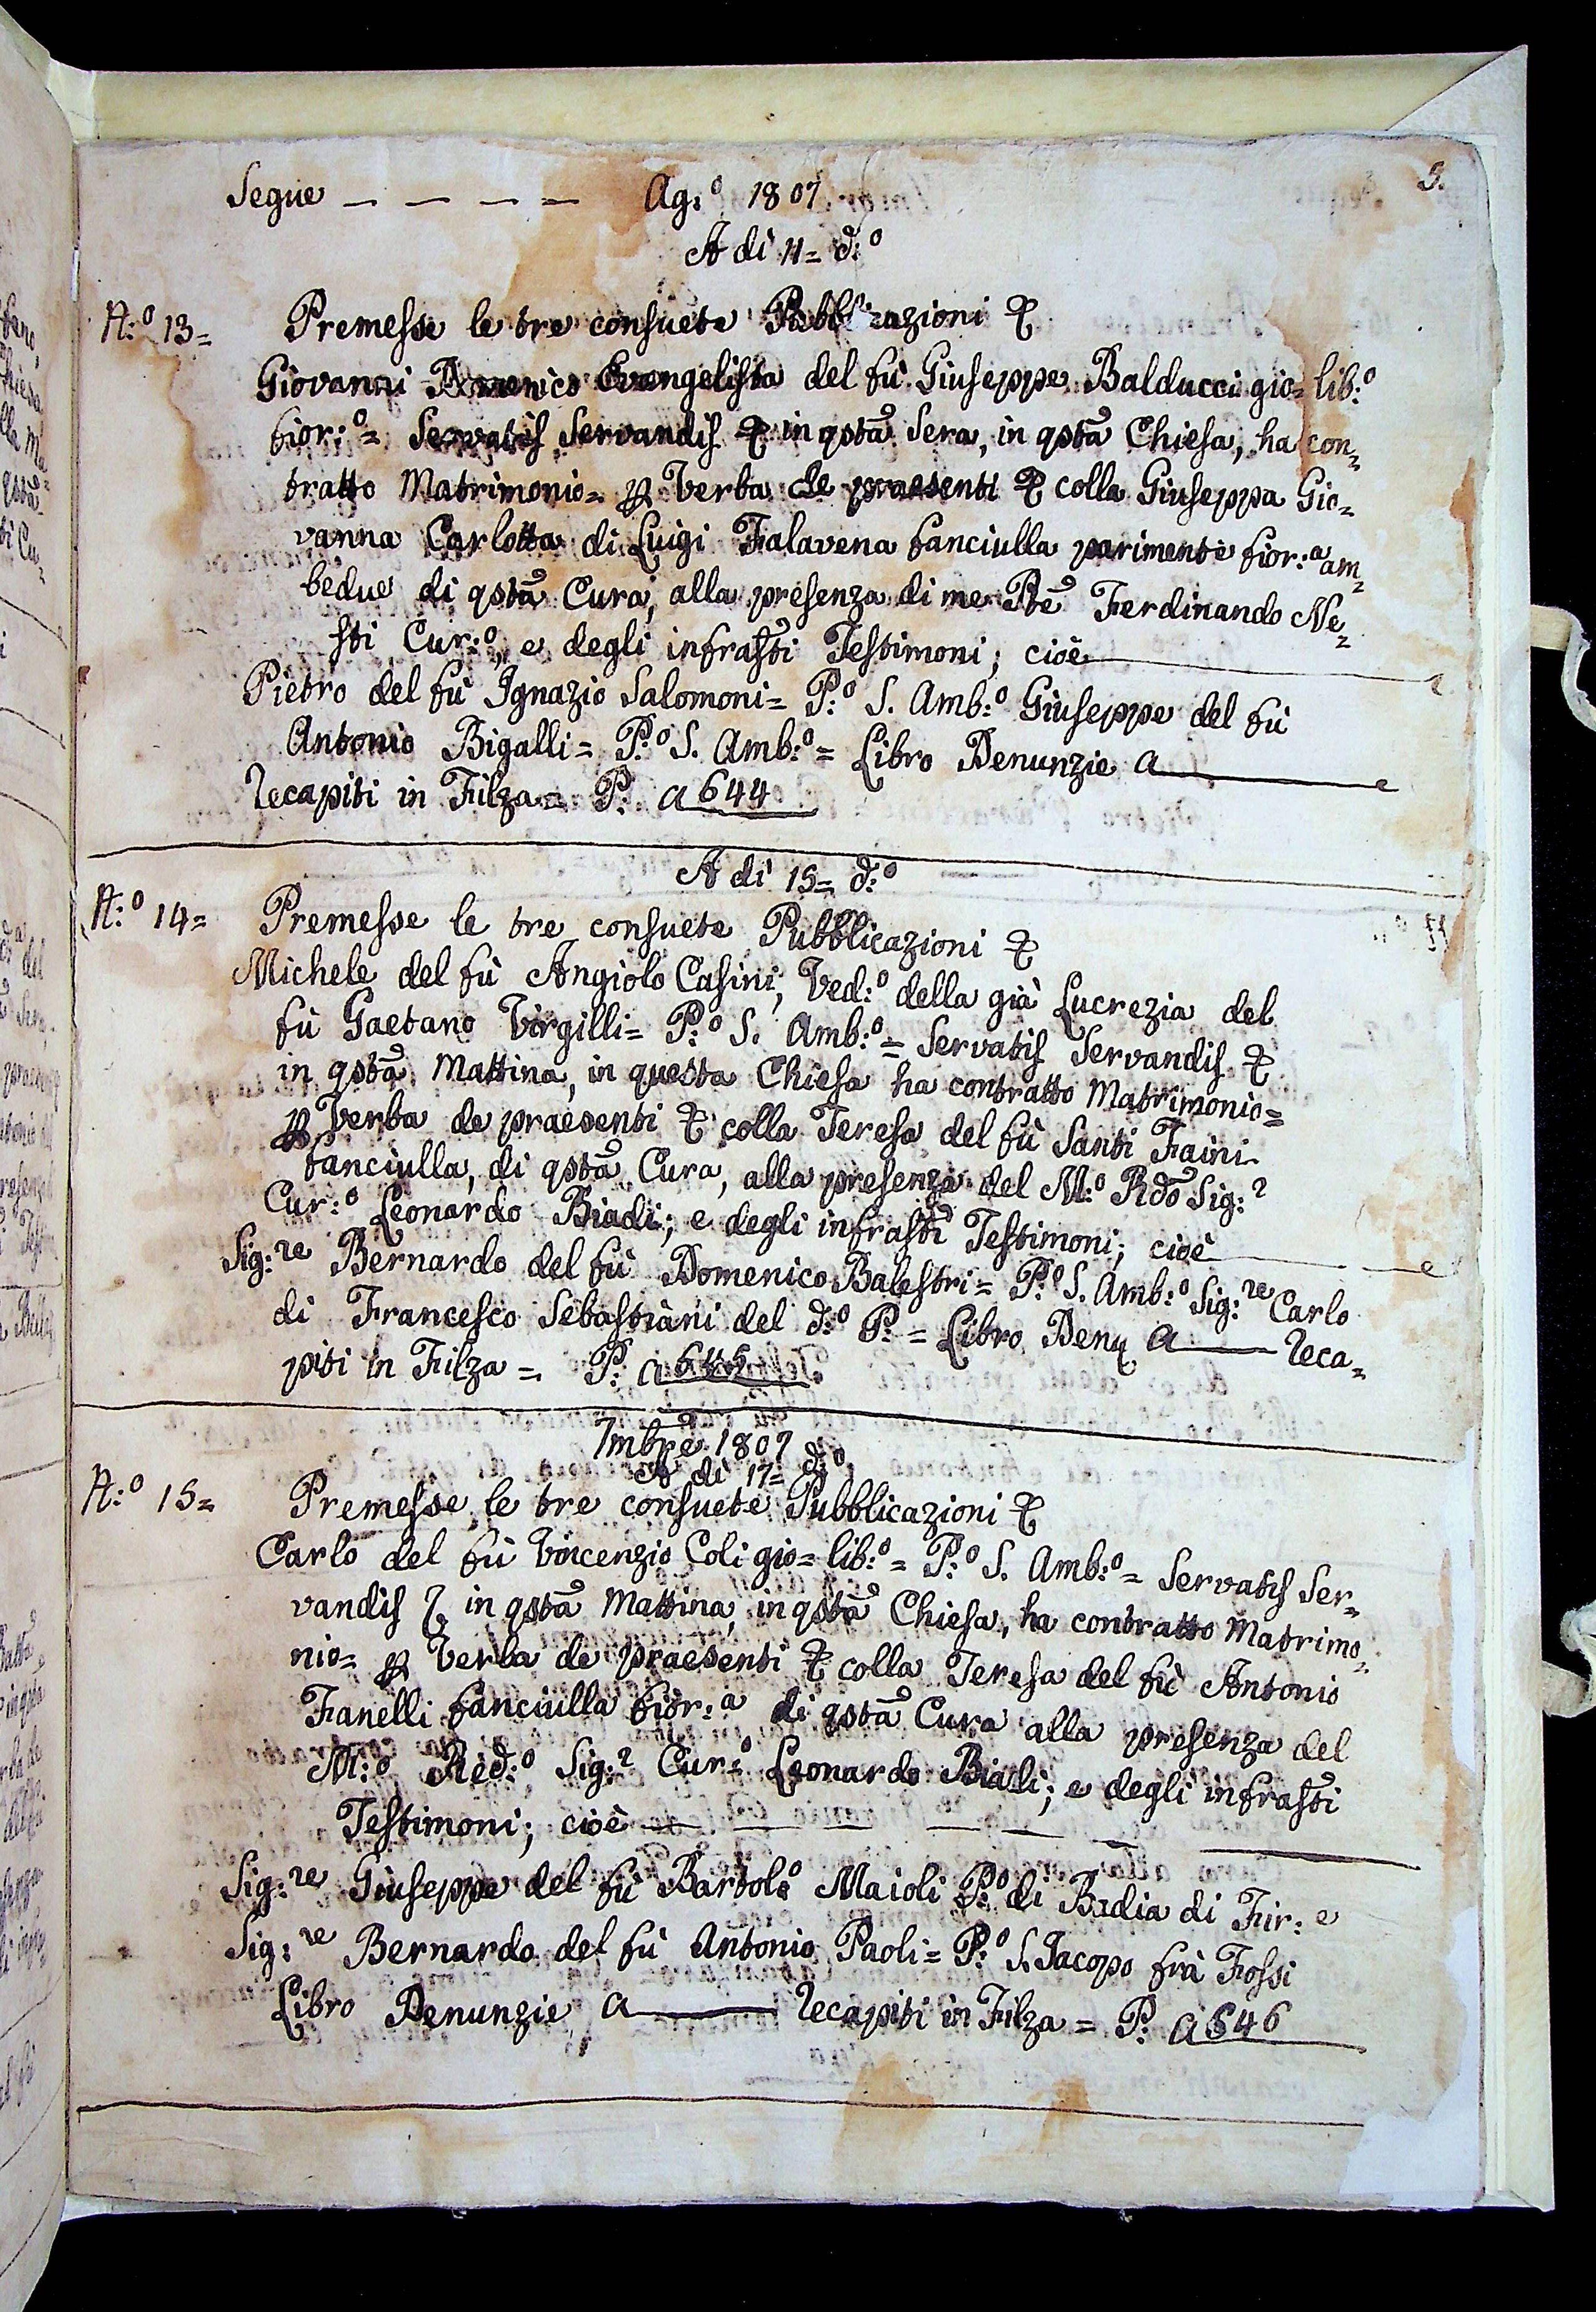 5.
Segue — — — — Ag:º 1807
A dì 11= d:º
N:º 13= Premesse le tre consuete Pubblicazioni &
Giovanni Domenico Evangelista del fù Giuseppe Balducci gio= lib:º
fior:º= Servatis Servandis & in qstã Sera, in qstã Chiesa, ha con=
tratto Matrimonio= p Verba de praesenti & colla Giuseppa Gio=
vanna Carlotta di Luigi Falavena fanciulla parimente fior:ª am=
bedue di qstã Cura, alla presenza di me Pte Ferdinando Ne=
sti Cur:º, e degli infrastti Testimoni; cioè
Pietro del fù Ignazio Salomoni= P:º S. Amb:º Giuseppe del fù
Antonio Bigalli= P:º S. Amb:º= Libro Denunzie a
Recapiti in Filza= P: a 644
A dì 15= d:º
N:º 14= Premesse le tre consuete Pubblicazioni &
Michele del fù Angiolo Casini, Ved:º della già Lucrezia del
fù Gaetano Virgilli= P:º S. Amb:º= Servatis Servandis &
in qstã Mattina, in questa Chiesa ha contratto Matrimonio=
p Verba de praesenti & colla Teresa del fù Santi Faini
fanciulla, di qstã Cura, alla presenza del M:º Rdõ Sig:r
Cur:º Leonardo Biadi; e degli infrastti Testimoni; cioè
Sig:re Bernardo del fù Domenico Balestri= P:º S. Amb:º Sig:re Carlo
di Francesco Sebastiani del d:º P:= Libro Denu a — Reca=
piti in Filza= P: a 645
7mbrẽ 1807
A dì 17= d:º
N:º 15= Premesse le tre consuete Pubblicazioni &
Carlo del fù Vincenzio Coli gio= lib:º= P:º S. Amb:º= Servatis Ser=
vandis & in qstã Mattina, in qstã Chiesa, ha contratto Matrimo=
nio= p Verba de praesenti & colla Teresa del fù Antonio
Fanelli fanciulla fior:ª di qstã Cura alla presenza del
M:º Red:º Sig:r Cur:º Leonardo Biadi; e degli infrastti
Testimoni; cioè — — — — — —
Sig:re Giuseppe del fù Bartolº Maioli P:º di Badia di Fir:e
Sig:re Bernardo del fù Antonio Paoli= P:º S. Jacopo frà Fossi
Libro Denunzie a — Recapiti in Filza= P: a 646